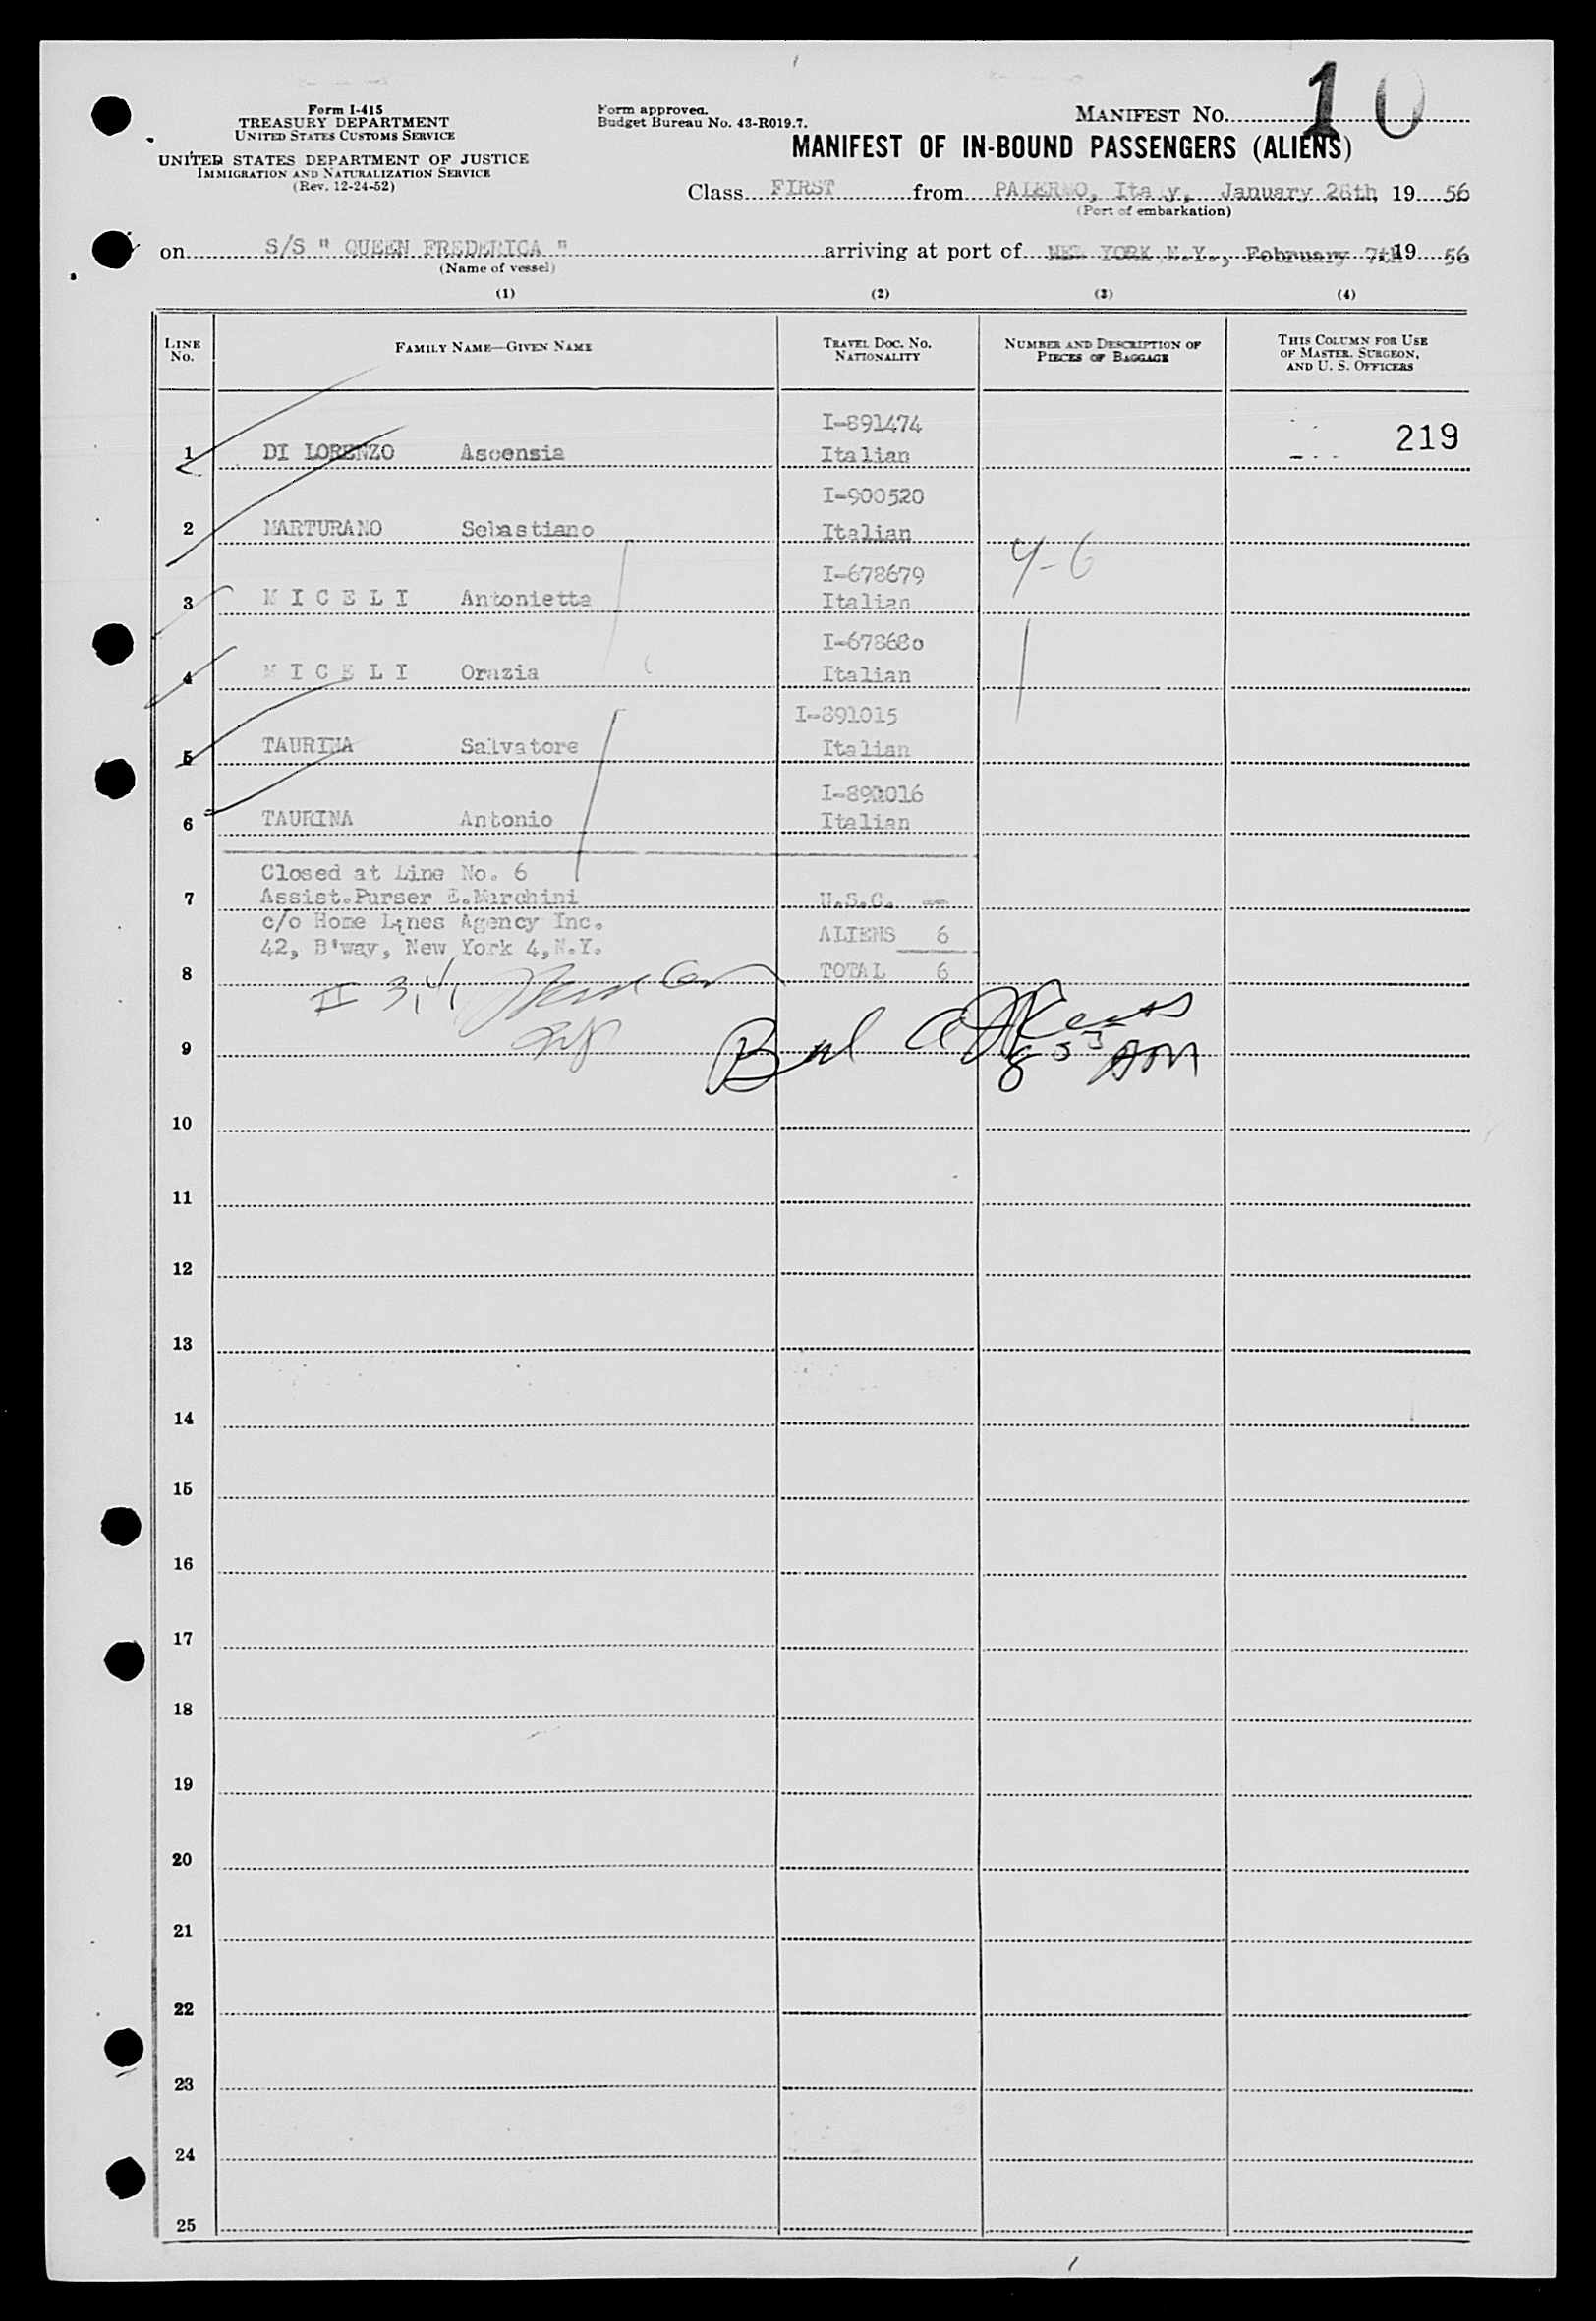 Form I-415
TREASURY DEPARTMENT
UNITED STATES CUSTOMS SERVICE
UNITED STATES DEPARTMENT OF JUSTICE
IMMIGRATION AND NATURALIZATION SERVICE
(Rev. 12-24-52)
Form approved.
Budget Bureau No. 43-R019.7.
MANIFEST NO. 10
MANIFEST OF IN-BOUND PASSENGERS (ALIENS)
Class FIRST from PALERMO, Italy, January 26th, 19 56
(Port of embarkation)
on S/S " QUEEN FREDERICA " arriving at port of NEW YORK N.Y., February 7th 19 56
(Name of vessel)
(1) (2) (3) (4)
LINE NO. FAMILY NAME—GIVEN NAME TRAVEL DOC. NO. NATIONALITY NUMBER AND DESCRIPTION OF PIECES OF BAGGAGE THIS COLUMN FOR USE OF MASTER, SURGEON, AND U. S. OFFICERS
I-891474
1 DI LORENZO Ascensia Italian 219
I-900520
2 MARTURANO Sebastiano Italian
4-6
I-678679
3 M I C E L I Antonietta Italian
I-678680
4 M I C E L I Orazia Italian
I-891015
5 TAURINA Salvatore Italian
I-892016
6 TAURINA Antonio Italian
Closed at Line No. 6
7 Assist.Purser E.Marchini U.S.C. --
c/o Home Lines Agency Inc.
ALIENS 6
42, B'way, New York 4,N.Y.
8 TOTAL 6
II 3,4,
9
10
11
12
13
14
15
16
17
18
19
20
21
22
23
24
25